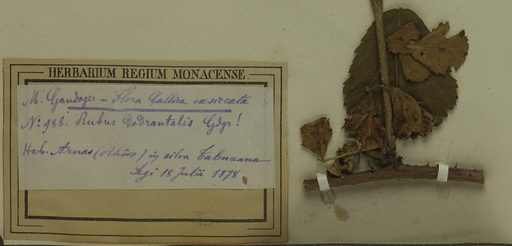 HERBARIUM REGIUM MONACENSE
M. Gandoger — Flora Gallica exsiccata
No. 988. Rubus Dodrantalis Gdgr!
Hab. Arnas (Rhône) in silva
Legi 18 Julii 1878